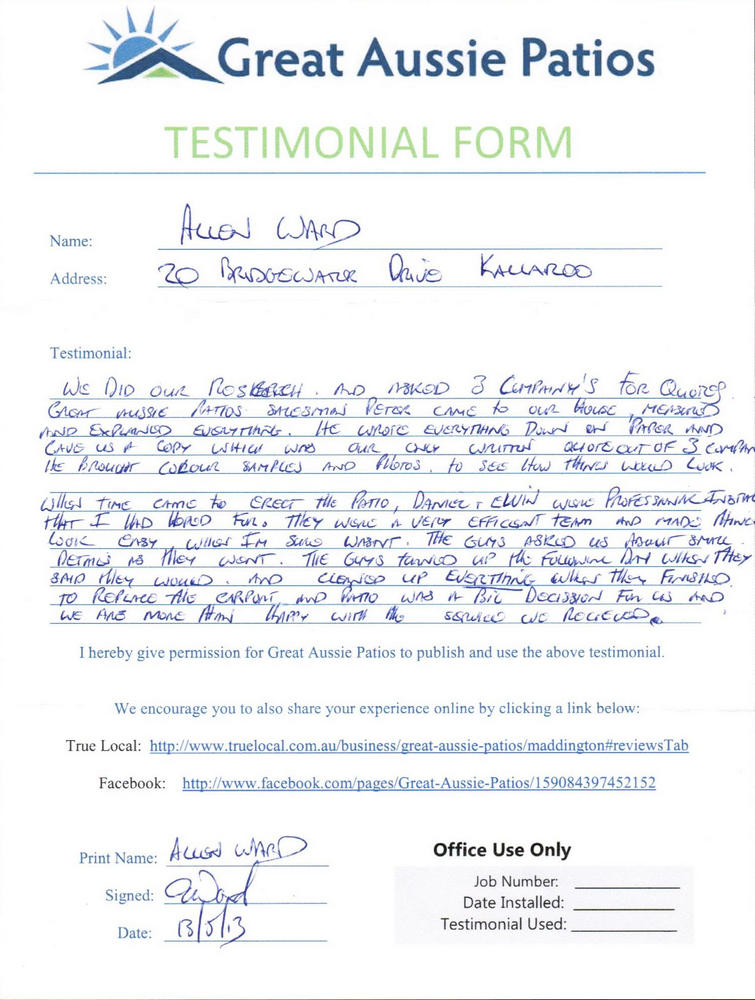 Great Aussie Patios
TESTIMONIAL FORM
Name: ALLEN WARD
Address: 20 BRIDGEWATER DRIVE KALLAROO
Testimonial:
WE DID OUR RESEARCH. AND ASKED 3 COMPANY'S FOR QUOTES
GREAT AUSSIE PATIOS SALESMAN PETER CAME TO OUR HOUSE, MEASURED
AND EXPLAINED EVERYTHING. HE WROTE EVERYTHING DOWN ON PAPER AND
GAVE US A COPY WHICH WAS OUR ONLY WRITTEN QUOTE OUT OF 3 COMPAN
HE BROUGHT COLOUR SAMPLES AND PHOTOS, TO SEE HOW THINGS WOULD LOOK.
WHEN TIME CAME TO ERECT THE PATIO, DANIEL & ELWIN WERE PROFESSIONAL INSTAL
THAT I HAD HOPED FOR. THEY WERE A VERY EFFICIENT TEAM AND MADE THINGS
LOOK EASY WHEN I'M SURE WASNT. THE GUYS ASKED US ABOUT SMALL
DETAILS AS THEY WENT. THE GUYS TURNED UP THE FOLLOWING DAY WHEN THEY
SAID THEY WOULD. AND CLEANED UP EVERTHING WHEN THEY FINISHED.
TO REPLACE THE CARPORT AND PATIO WAS A BIG DECISSION FOR US AND
WE ARE MORE THAN HAPPY WITH THE SERVICE WE RECIEVED.
I hereby give permission for Great Aussie Patios to publish and use the above testimonial.
We encourage you to also share your experience online by clicking a link below:
True Local: http://www.truelocal.com.au/business/great-aussie-patios/maddington#reviewsTab
Facebook: http://www.facebook.com/pages/Great-Aussie-Patios/159084397452152
Print Name: ALLEN WARD
Signed: AWard
Date: 13/5/13
Office Use Only
Job Number:
Date Installed:
Testimonial Used: